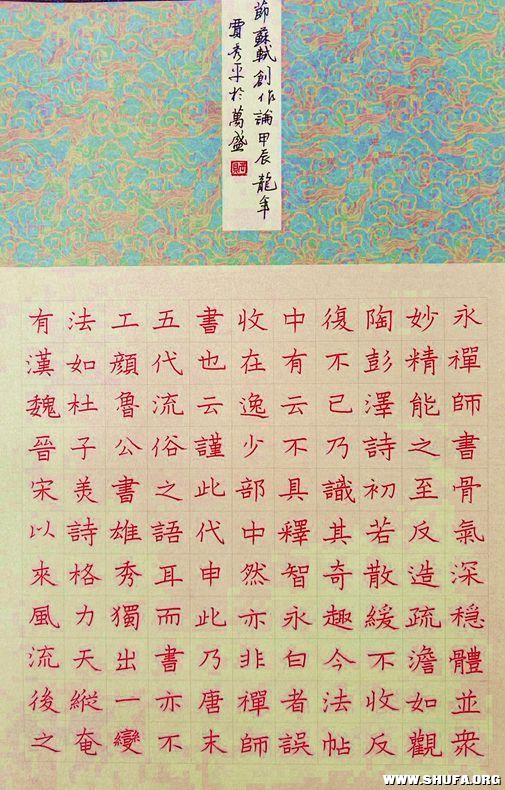 節蘇軾創作論甲辰龍年
賈秀平於萬盛
永禪師書骨氣深穩體並衆
妙精能之至反造疏澹如觀
陶彭澤詩初若散緩不收反
復不已乃識其奇趣今法帖
中有云不具釋智永白者誤
收在逸少部中然亦非禪師
書也云謹此代申此乃唐末
五代流俗之語耳而書亦不
工顏魯公書雄秀獨出一變
法如杜子美詩格力天縱奄
有漢魏晉宋以來風流後之
WWW.SHUFA.ORG